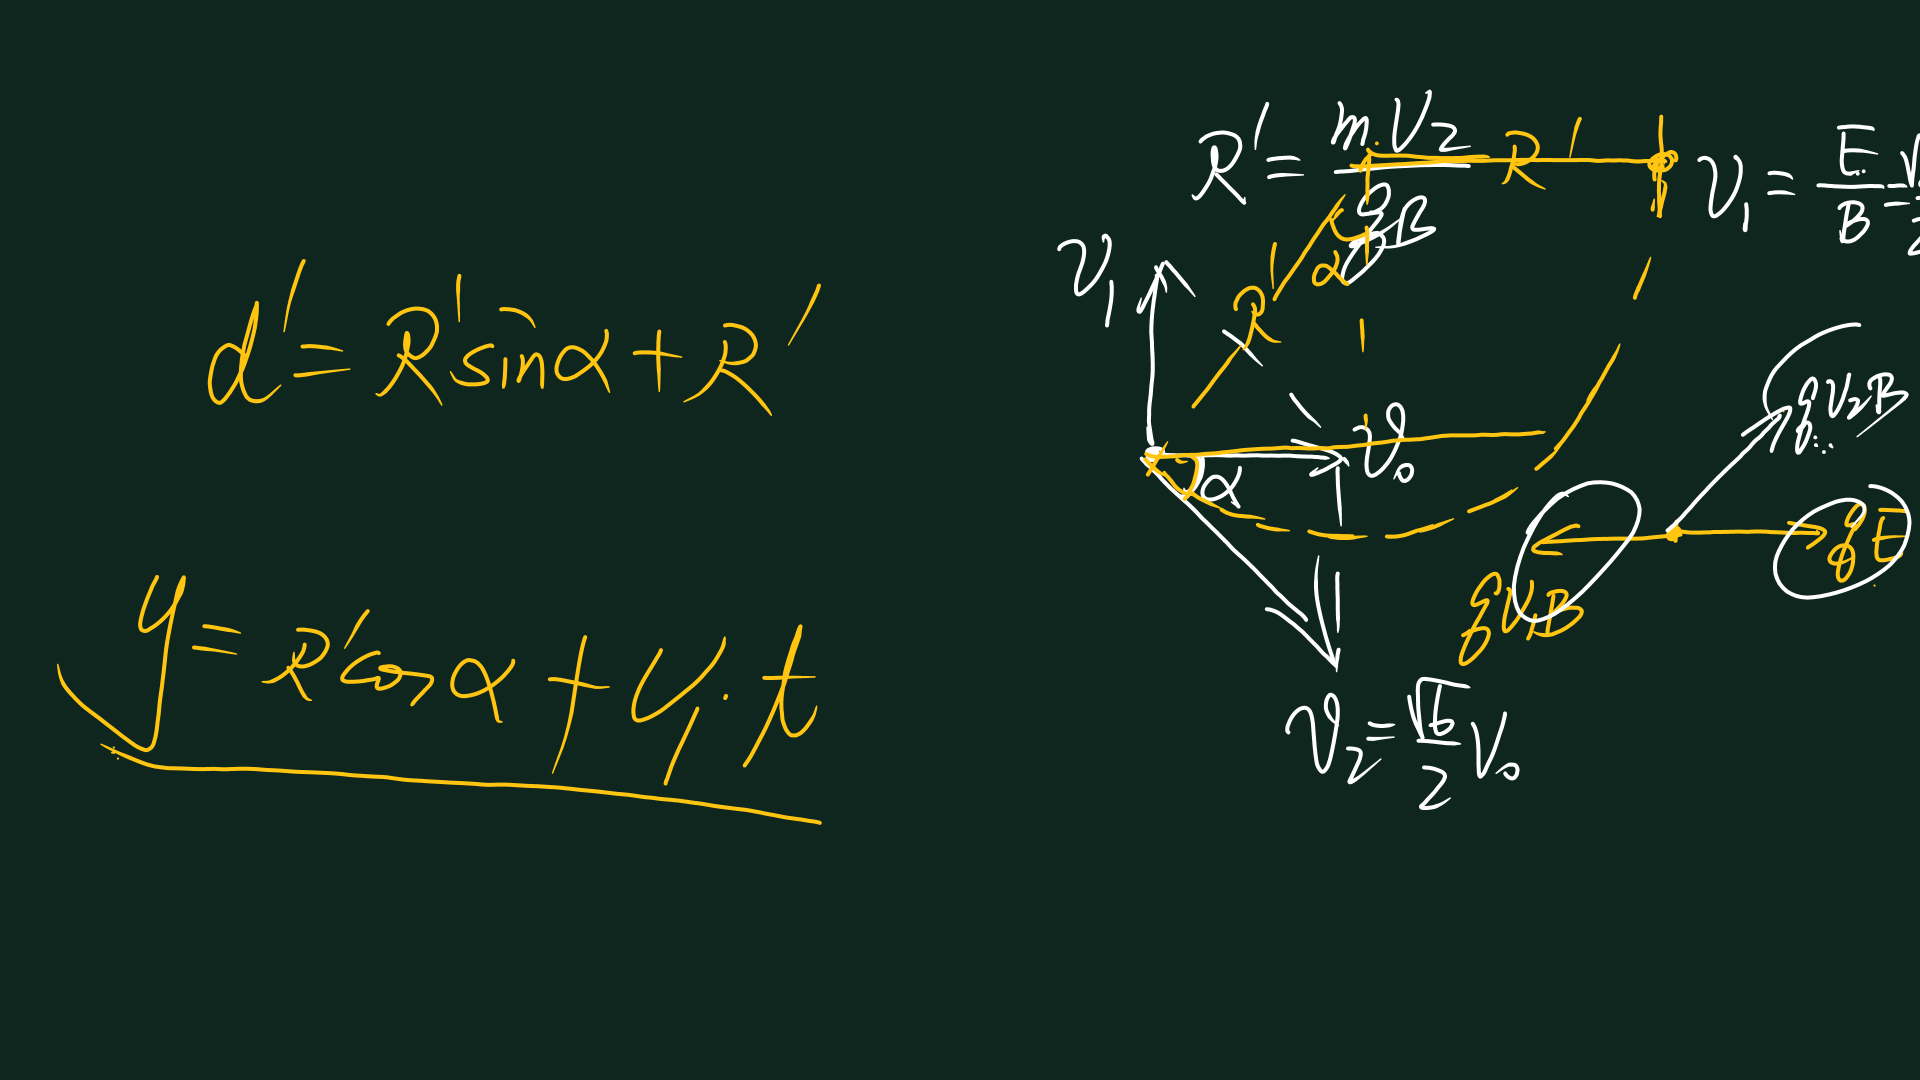 d' = R' sin α + R'
y = R' cos α + V₁ · t
R' = mV₂ / qB
R'
V₁ = E / B =
V₁
R'
α
V₀
α
qV₂B
qE
qV₁B
V₂ = √6 / 2 V₀